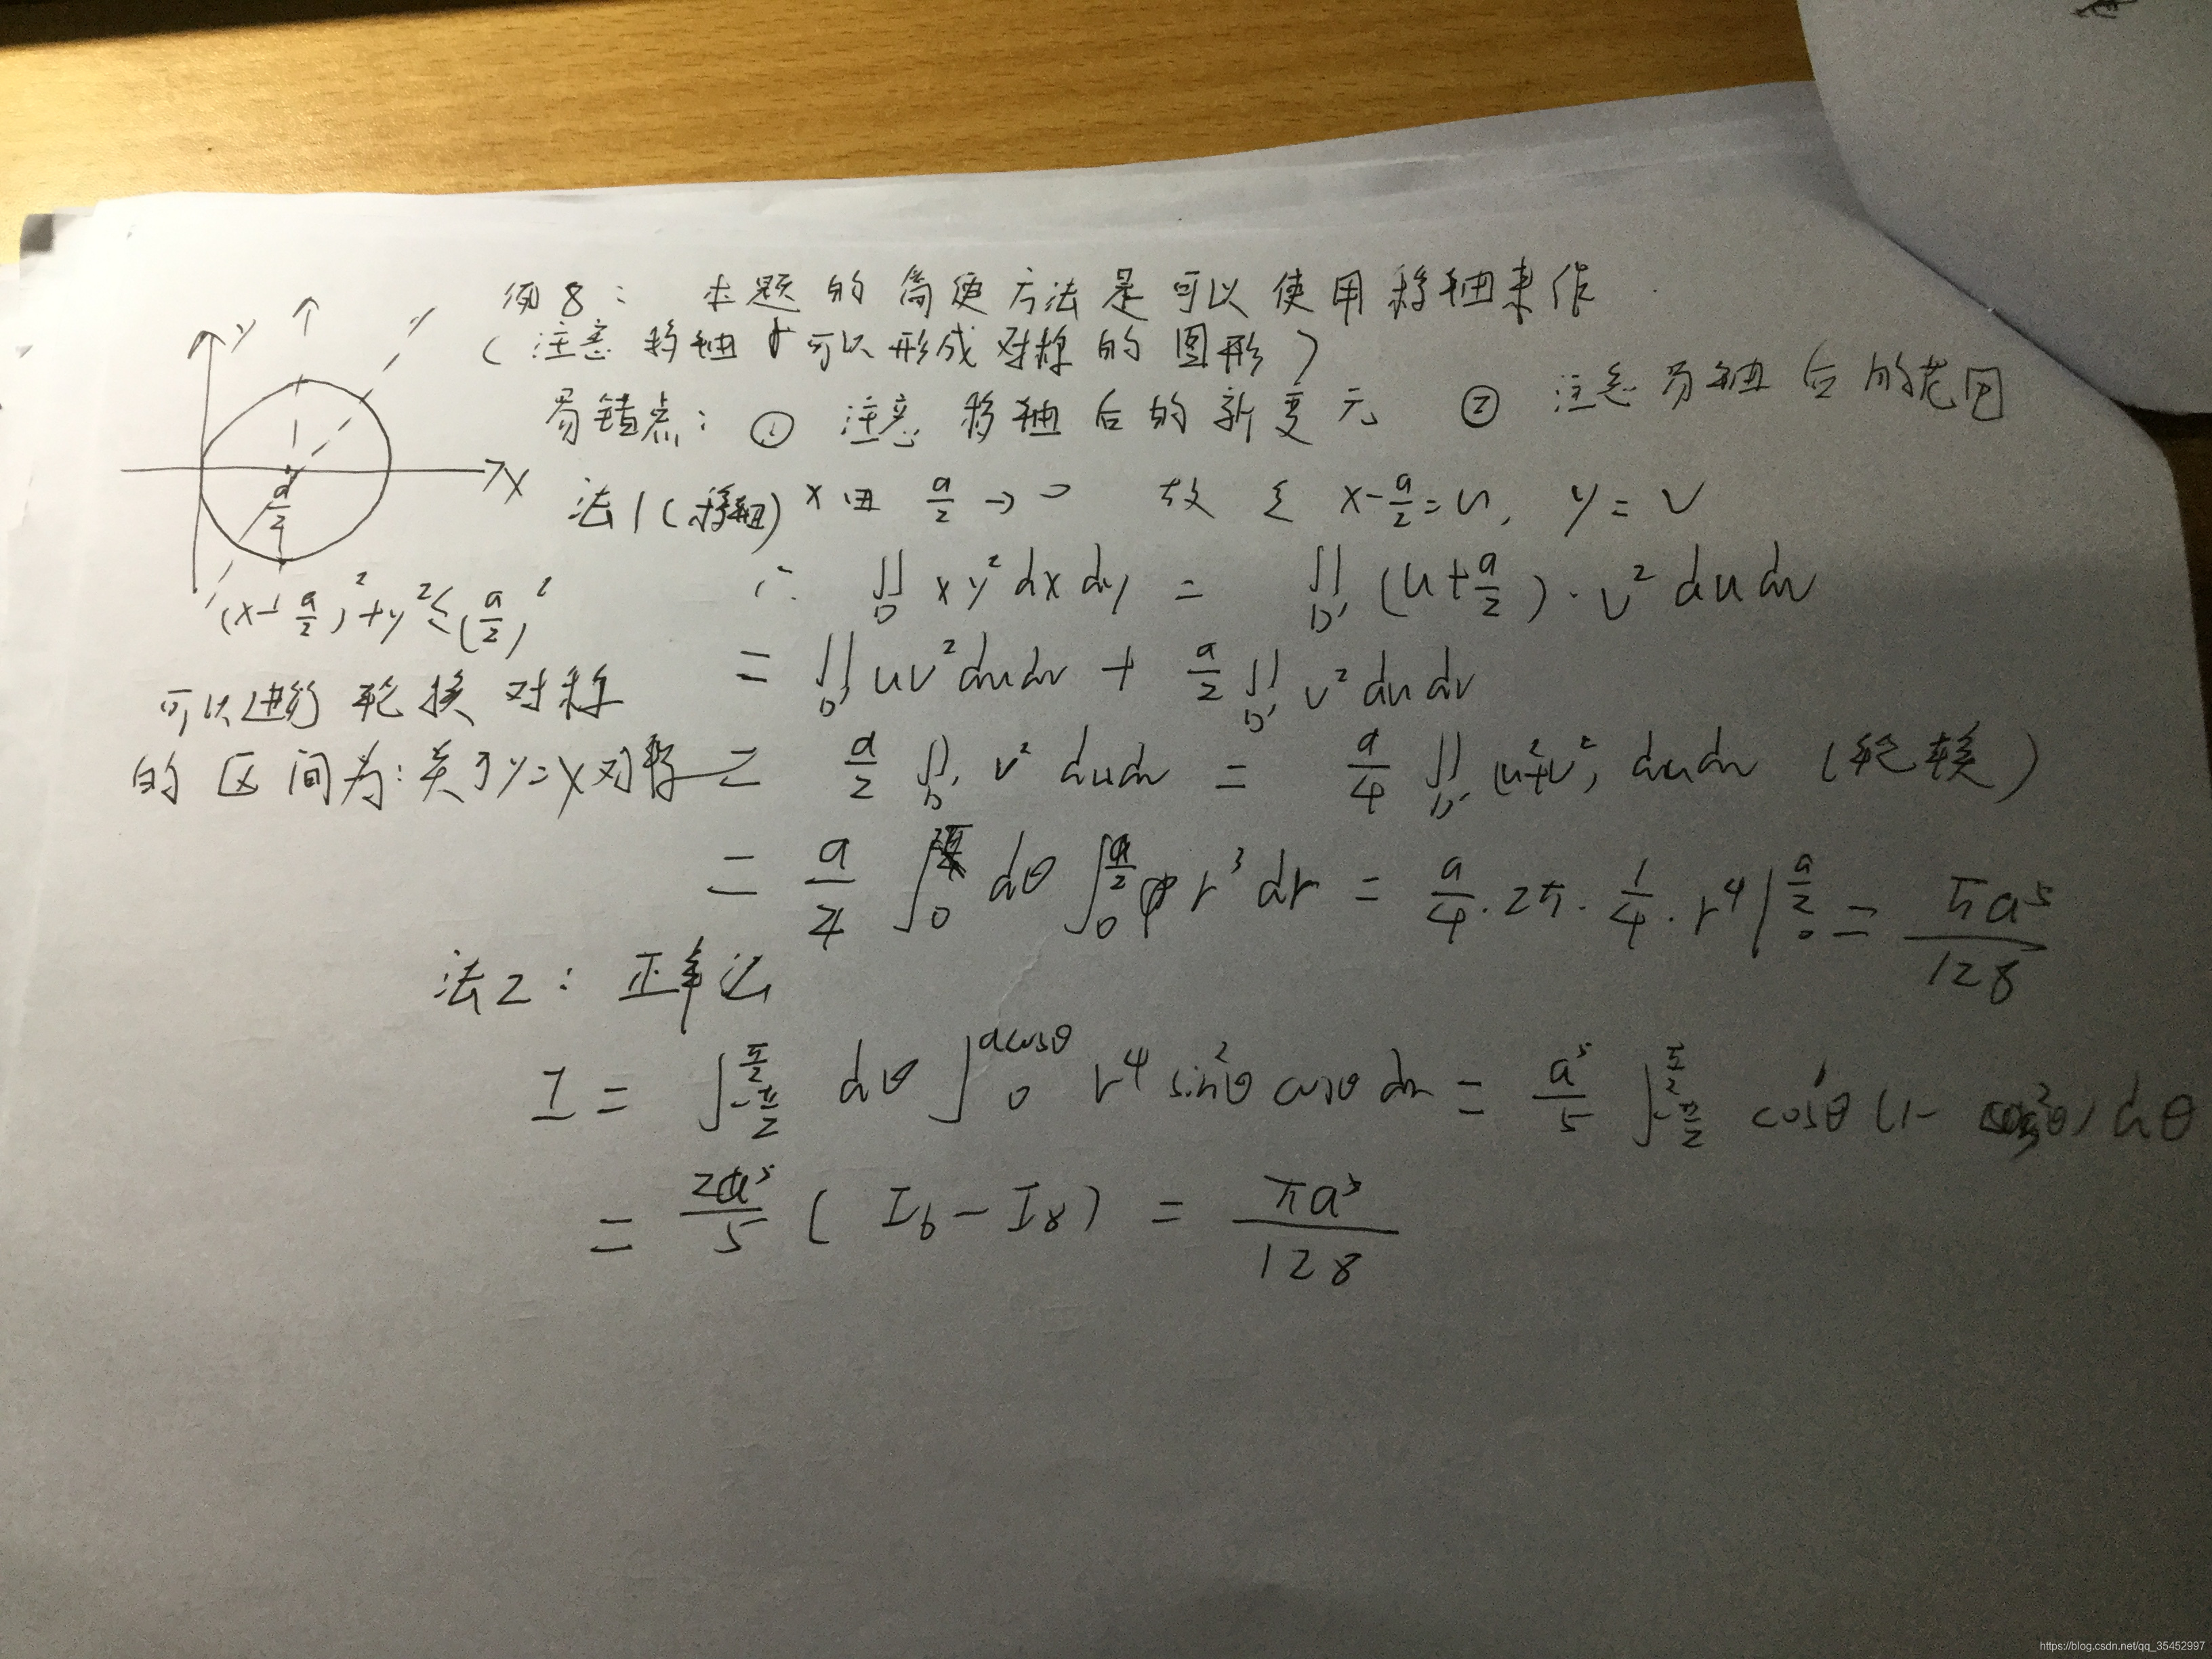 例8: 本题的简便方法是可以使用移轴来作
(注意移轴可以形成对称的图形)
易错点: ① 注意移轴后的新变元 ② 注意移轴后的范围
y
x
a/2
(x-a/2)²+y²≤(a/2)²
可以进行轮换对称
的区间为:关于y=x对称
法1(移轴) x由 a/2→0 故令 x-a/2=u, y=v
∴ ∬_D xy²dxdy = ∬_D' (u+a/2)·v²dudv
= ∬_D' uv²dudv + a/2 ∬_D' v²dudv
= a/2 ∬_D' v²dudv = a/4 ∬_D' (u²+v²)dudv (轮换)
= a/4 ∫_0 dθ ∫_0^{a/2} r³dr = a/4·2π·1/4·r⁴|_0^{a/2} = πa⁵/128
法2:
I = ∫_{-π/2}^{π/2} dθ ∫_0^{acosθ} r⁴sin²θcosθdr = a⁵/5 ∫_{-π/2}^{π/2} cos⁶θ(1-cos²θ)dθ
= 2a⁵/5 (I₆-I₈) = πa⁵/128
https://blog.csdn.net/qq_35452997